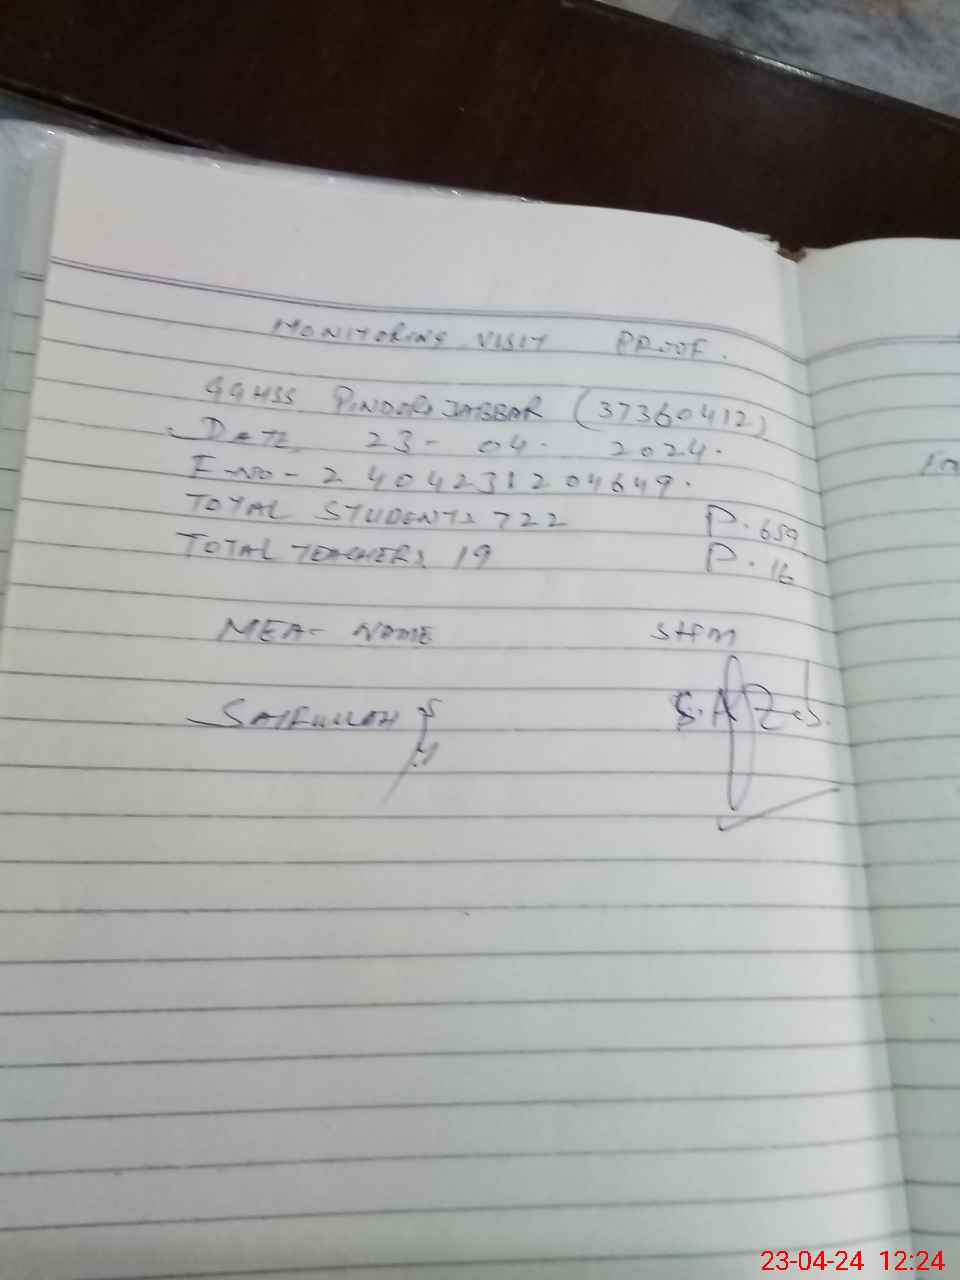 MONITORING VISIT PROOF.
GGHSS PINDORI JABBAR (37360412)
DATE 23- 04- 2024.
E-NO- 2404231204649.
TOTAL STUDENTS 722 P. 659
TOTAL TEACHERS 19 P. 16
MEA- NAME
SAIFULLAH
S.A Zeb.
23-04-24 12:24